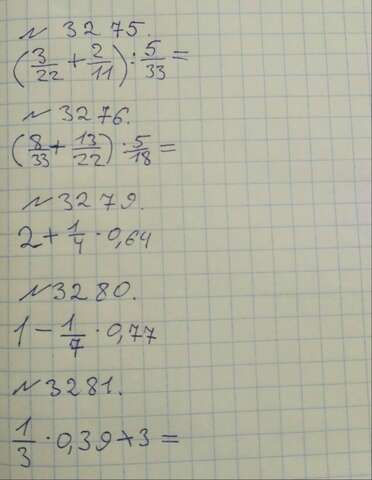 № 3275.
(3/22 + 2/11) : 5/33 =
№ 3276.
(8/33 + 13/22) : 5/18 =
№ 3279.
2 + 1/4 · 0,64
№ 3280.
1 - 1/7 · 0,77
№ 3281.
1/3 · 0,39 + 3 =